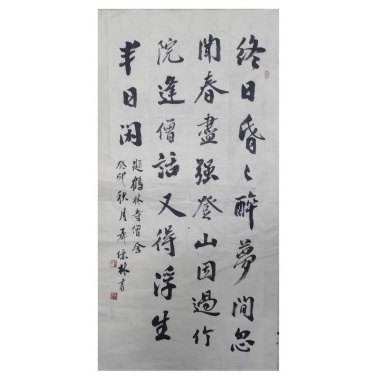 終日昏〻醉夢間忽
聞春盡强登山因過竹
院逢僧話又得浮生
半日闲
題鶴林寺僧舍
癸卯秋月